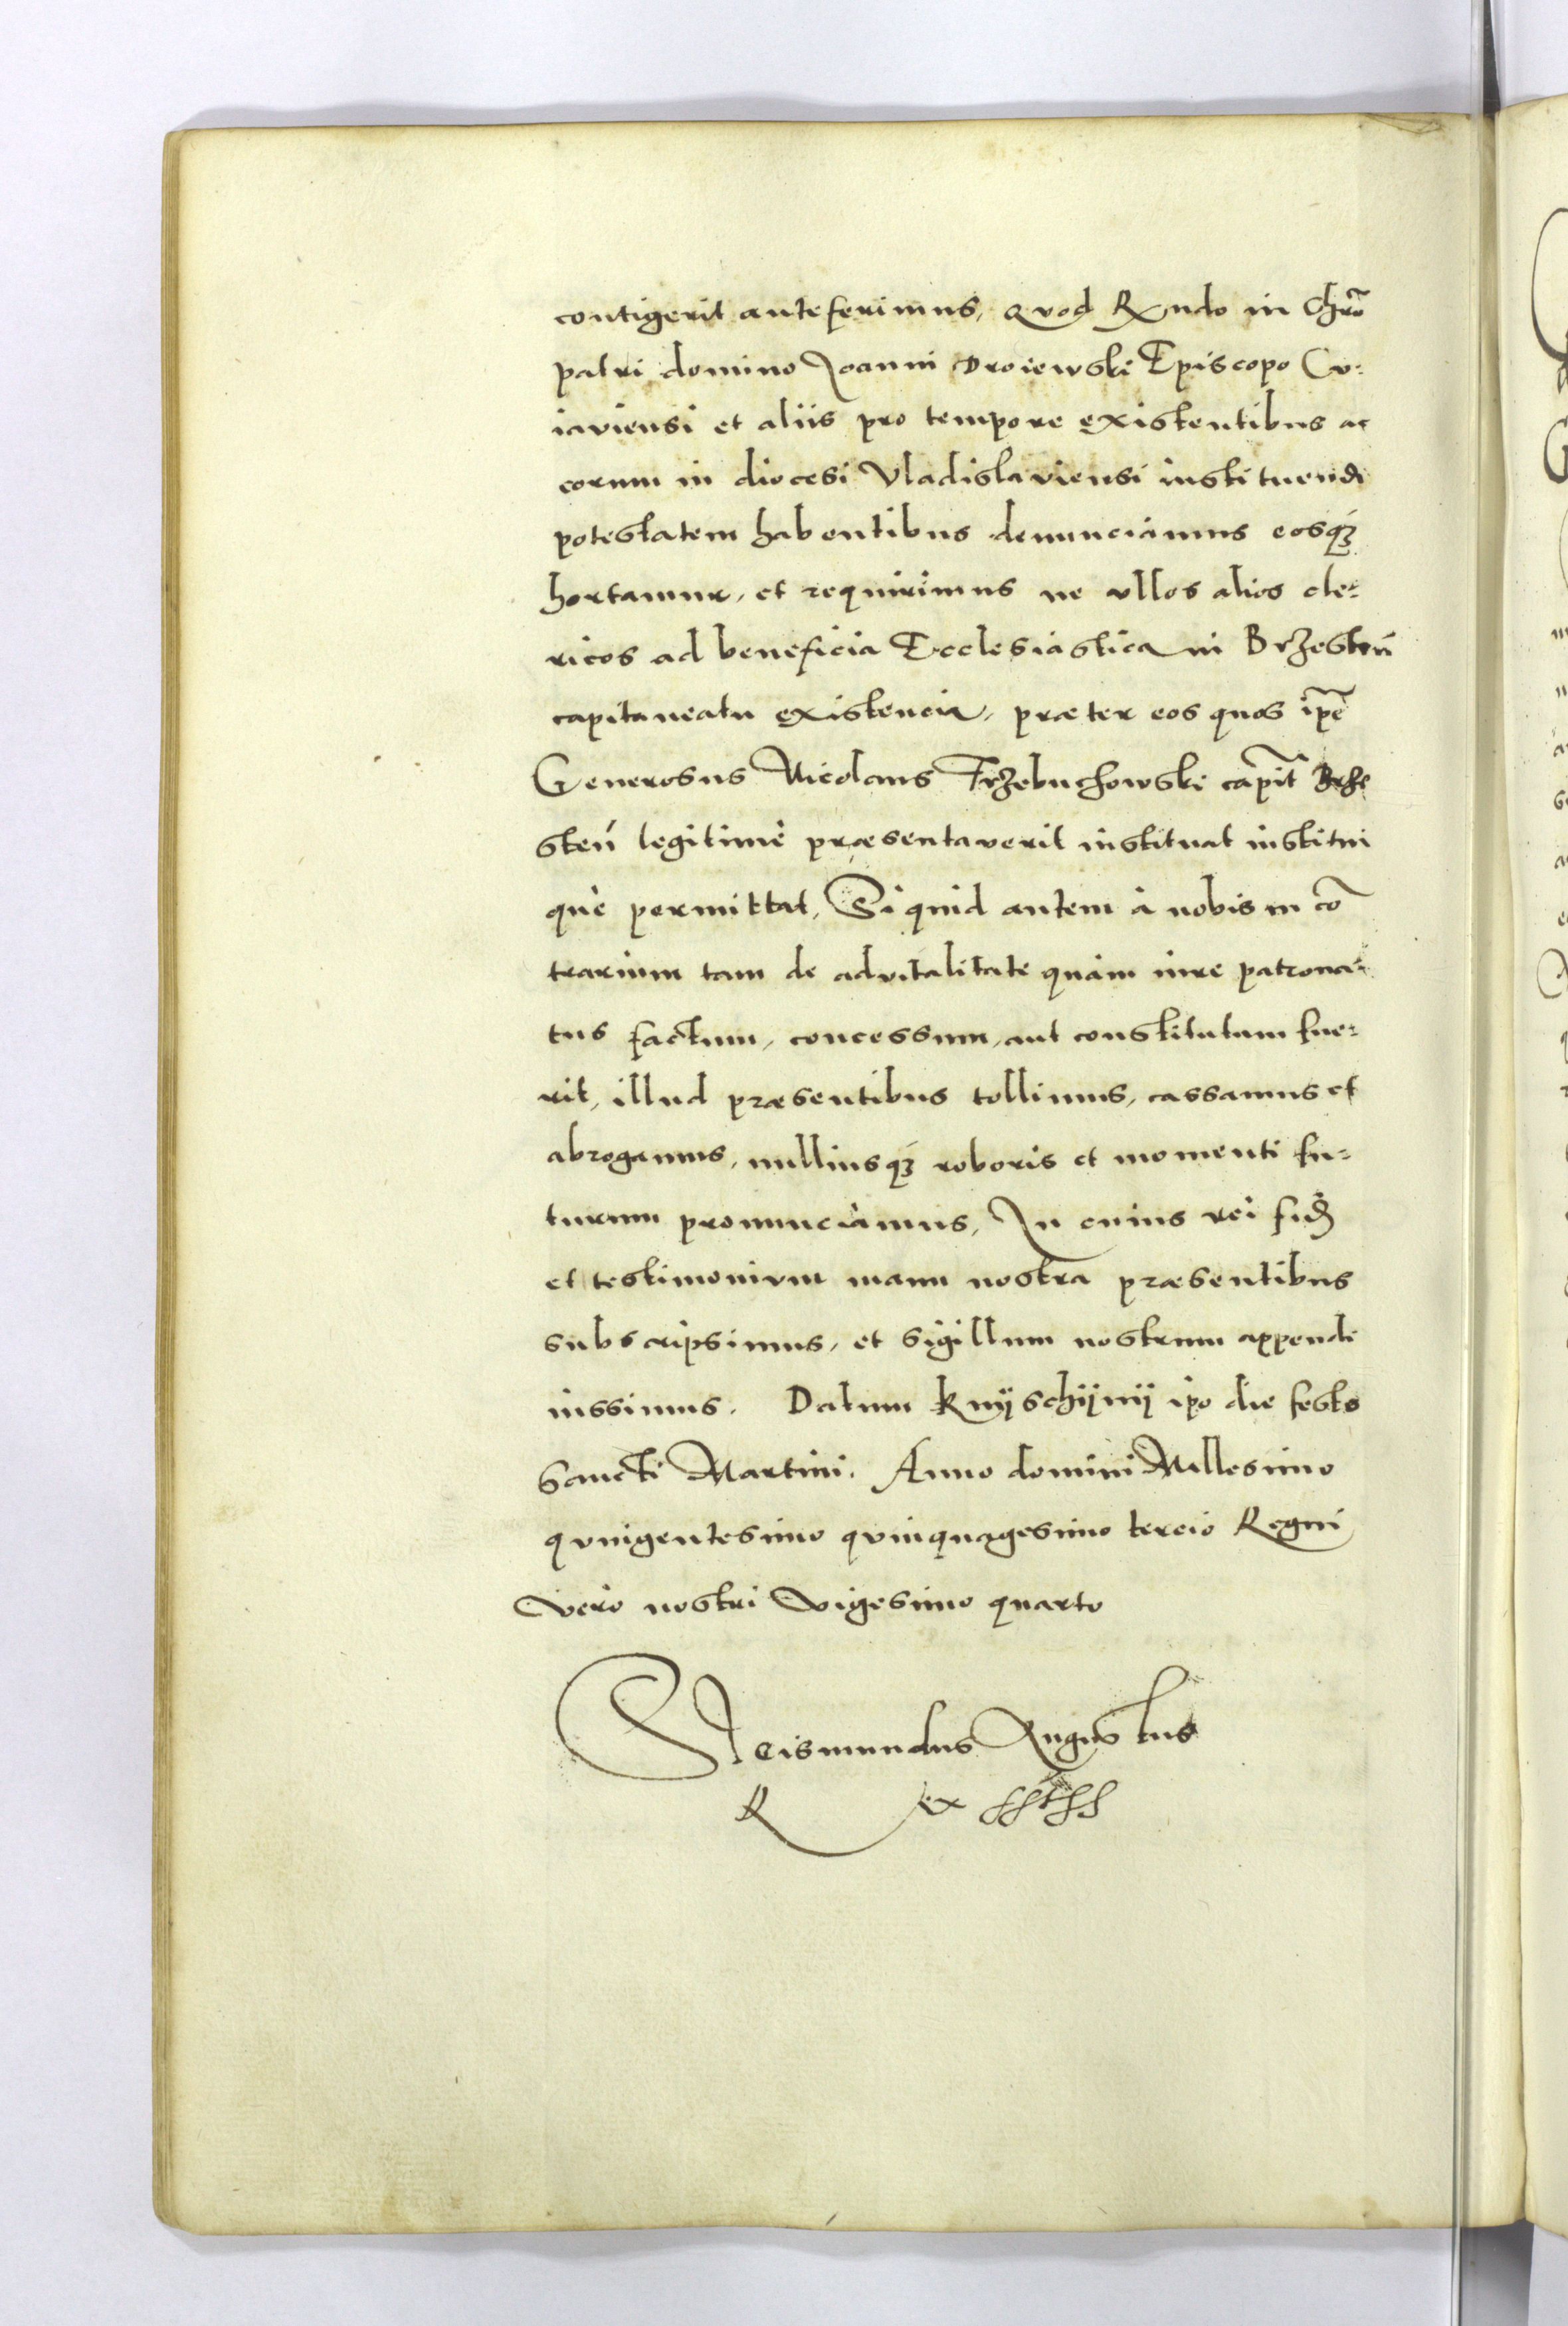 contigerit anteferimus, Quod Rxndo in Chrō
patri domino Joanni Droiewski Episcopo Cu=
iaviensi et aliis pro tempore existentibus ac
eorum in diocesi Vladislaviensi instituendi
potestatem habentibus denunciamus eosqꝫ
hortamur, et requirimus ne ullos alios cle=
ricos ad beneficia Ecclesiastica in Brzesteń
capitaneatu existencia, præter eos quos ip̄e
Generosus Nicolaus Trzebuchowski cap̄it Brze
steń legitimè præsentaverit instituat institui
què permittat, Si quid autem à nobis in cō
trarium tam de advitalitate quàm iure patrona=
tus factum, concessum, aut constitutum fue=
rit, illud præsentibus tollimus, cassamus et
abrogamus, nulliusqꝫ roboris et momenti fu=
turum pronunciamus, In cuius rei fid̄
et testimonium manu nostra præsentibus
subscripsimus, et sigillum nostrum appendi
iussimus. Datum Knijschijnij ip̄o die festo
Sancti Martini. Anno domini Millesimo
quingentesimo quinquagesimo tercio Regni
vero nostri vigesimo quarto
Sigismundus Augustus
Rex ssth